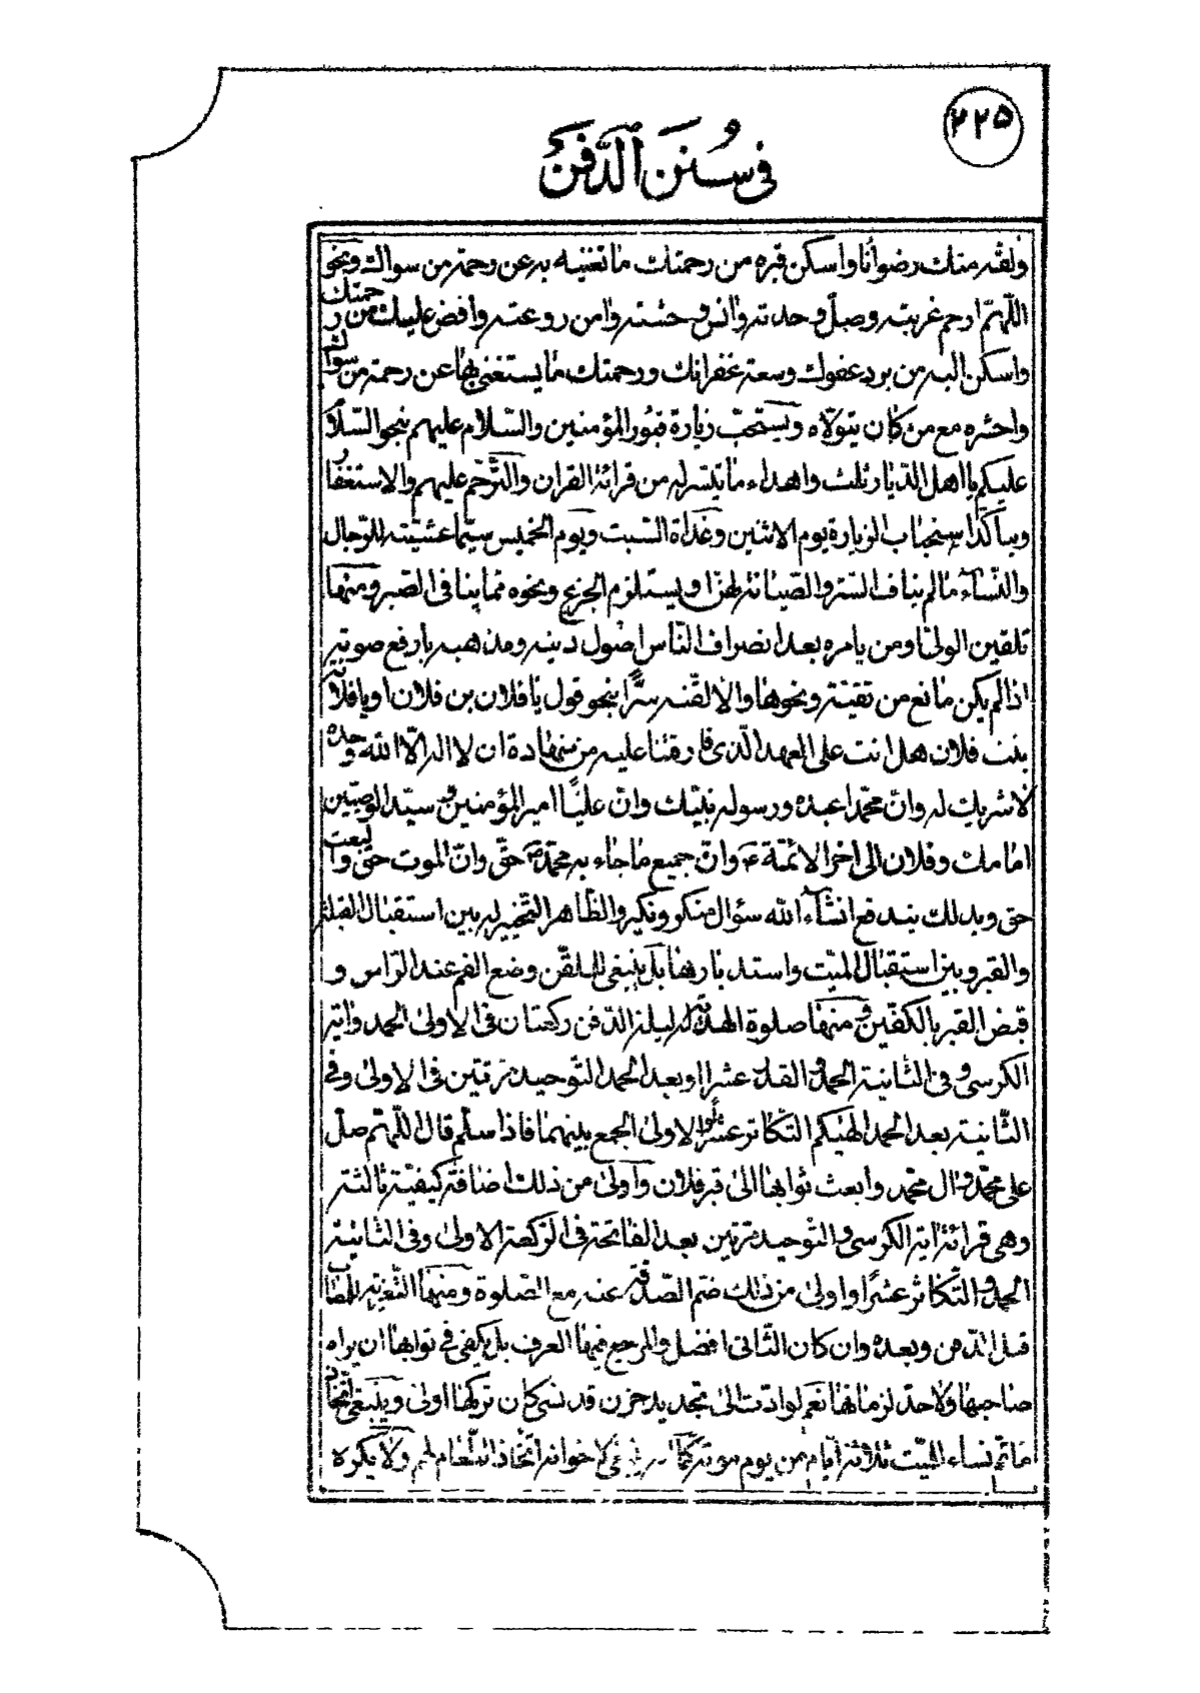 ٢٢٥
فى سُنَنِ الدَّفن
ولقه منك رضوانا واسكن قبره من رحمتك ما تغنيه به عن رحمة من سواك ونحو
اللّهمّ ارحم غربته وصل وحدته وانس وحشته وامن روعته وافض عليه من رحمتك
واسكن اليه من برد عفوك وسعة غفرانك ورحمتك ما يستغنى بها عن رحمة من سواك
واحشره مع من كان يتولاه ويستحبّ زيارة قبور المؤمنين والسّلام عليهم بنحو السّلام
عليكم يا اهل الدّيار ثلث واهداء ما تيسّر له من قرائة القران والتّرحّم عليهم والاستغفار
ويتأكّد استحباب الزيارة يوم الاثنين وغداة السّبت ويوم الخميس سيّما عشيّته للرّجال
والنّسآء ما لم يناف السّتر والصّيانة لهنّ او يستلزم الجزع ونحوه ممّا ينافى الصّبر ومنها
تلقين الولىّ او من يامره بعد انصراف النّاس اصول دينه ومذهبه بارفع صوته
اذا لم يكن مانع من تقيّة ونحوها والا لقّنه سرًّا بنحو قول يا فلان بن فلان او يا فلانة
بنت فلان هل انت على العهد الّذى فارقتنا عليه من شهادة ان لا اله الّا اللّه وحده
لا شريك له وانّ محمّدا عبده ورسوله نبيّك وانّ عليّا امير المؤمنين وسيّد الوصيّين
امامك وفلان الى اخر الائمّة ع وانّ جميع ما جاء به محمّد ص حقّ وانّ الموت حقّ والبعث
حق وبذلك يندفع انشآء اللّه سؤال منكر ونكير والظّاهر التّخيير له بين استقبال القبلة
والقبر وبين استقبال الميّت واستدبارها بل ينبغى للملقّن وضع الفم عند الرّاس و
قبض القبر بالكفّين ومنها صلوة الهديّة له ليلة الدّفن ركعتان فى الاولى الحمد واية
الكرسى وفى الثّانية الحمد والقدر عشرا او بعد الحمد التّوحيد مرّتين فى الاولى وفى
الثّانية بعد الحمد الهيكم التّكاثر عشرا والاولى الجمع بينهما فاذا سلّم قال اللّهمّ صلّ
على محمّد وال محمّد وابعث ثوابها الى قبر فلان واولى من ذلك اضافة كيفيّة ثالثة
وهى قرائة اية الكرسى والتّوحيد مرّتين بعد الفاتحة فى الرّكعة الاولى وفى الثّانية
الحمد والتّكاثر عشرًا واولى من ذلك ضمّ الصّدقة عنه مع الصّلوة ومنها التّعزية للمصاب
قبل الدّفن وبعده وان كان الثّانى افضل والمرجع فيها العرف بل يكفى فى ثوابها ان يراه
صاحبها ولا حدّ لزمانها نعم لو ادّت الى تجديد حزن قد نسى كان تركها اولى وينبغى اتّخاذ
ماتم نساء الميّت ثلاثة ايّام من يوم موته كما ينبغى لاخوانه اتّخاذ الطّعام لهم ولا يكره